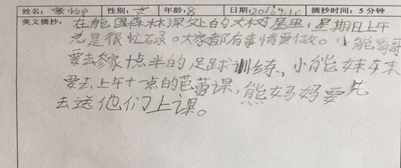 姓名: 性别: 年龄:8 日期:2016.9.10 摘抄时间:5分钟
美文摘抄: 在熊国森林深处的大树屋里,星期日上午
总是很忙碌。大家都有事情要做。小熊哥哥
要去参加十点半的足球训练、小熊妹妹
要去上午十一点的芭蕾课,熊妈妈要先
去送他们上课。